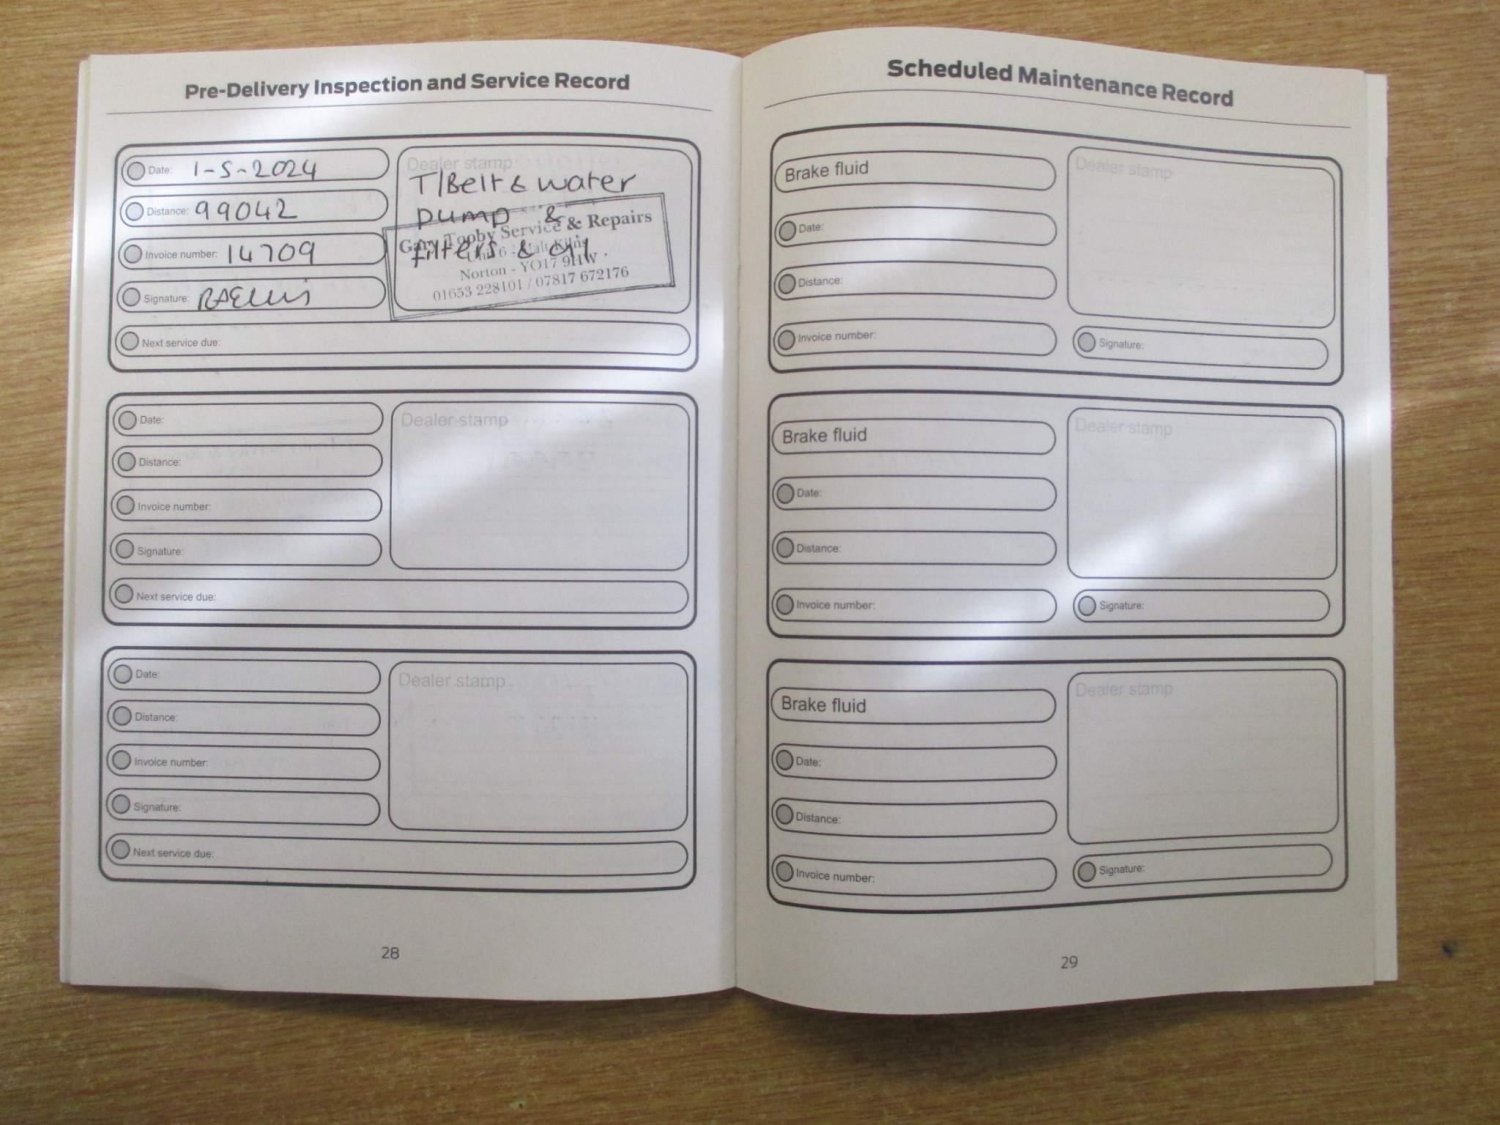 Pre-Delivery Inspection and Service Record
Date: 1-5-2024
Distance: 99042
Invoice number: 14709
Signature:
Next service due:
Dealer stamp
T/Belt & water
pump &
filters & oil
Gary Tooby Service & Repairs
Unit 6
Norton - YO17 9HW
01653 228101 / 07817 672176
Date:
Distance:
Invoice number:
Signature:
Next service due:
Dealer stamp
Date:
Distance:
Invoice number:
Signature:
Next service due:
Dealer stamp
28
Scheduled Maintenance Record
Brake fluid
Date:
Distance:
Invoice number:
Dealer stamp
Signature:
Brake fluid
Date:
Distance:
Invoice number:
Dealer stamp
Signature:
Brake fluid
Date:
Distance:
Invoice number:
Dealer stamp
Signature:
29